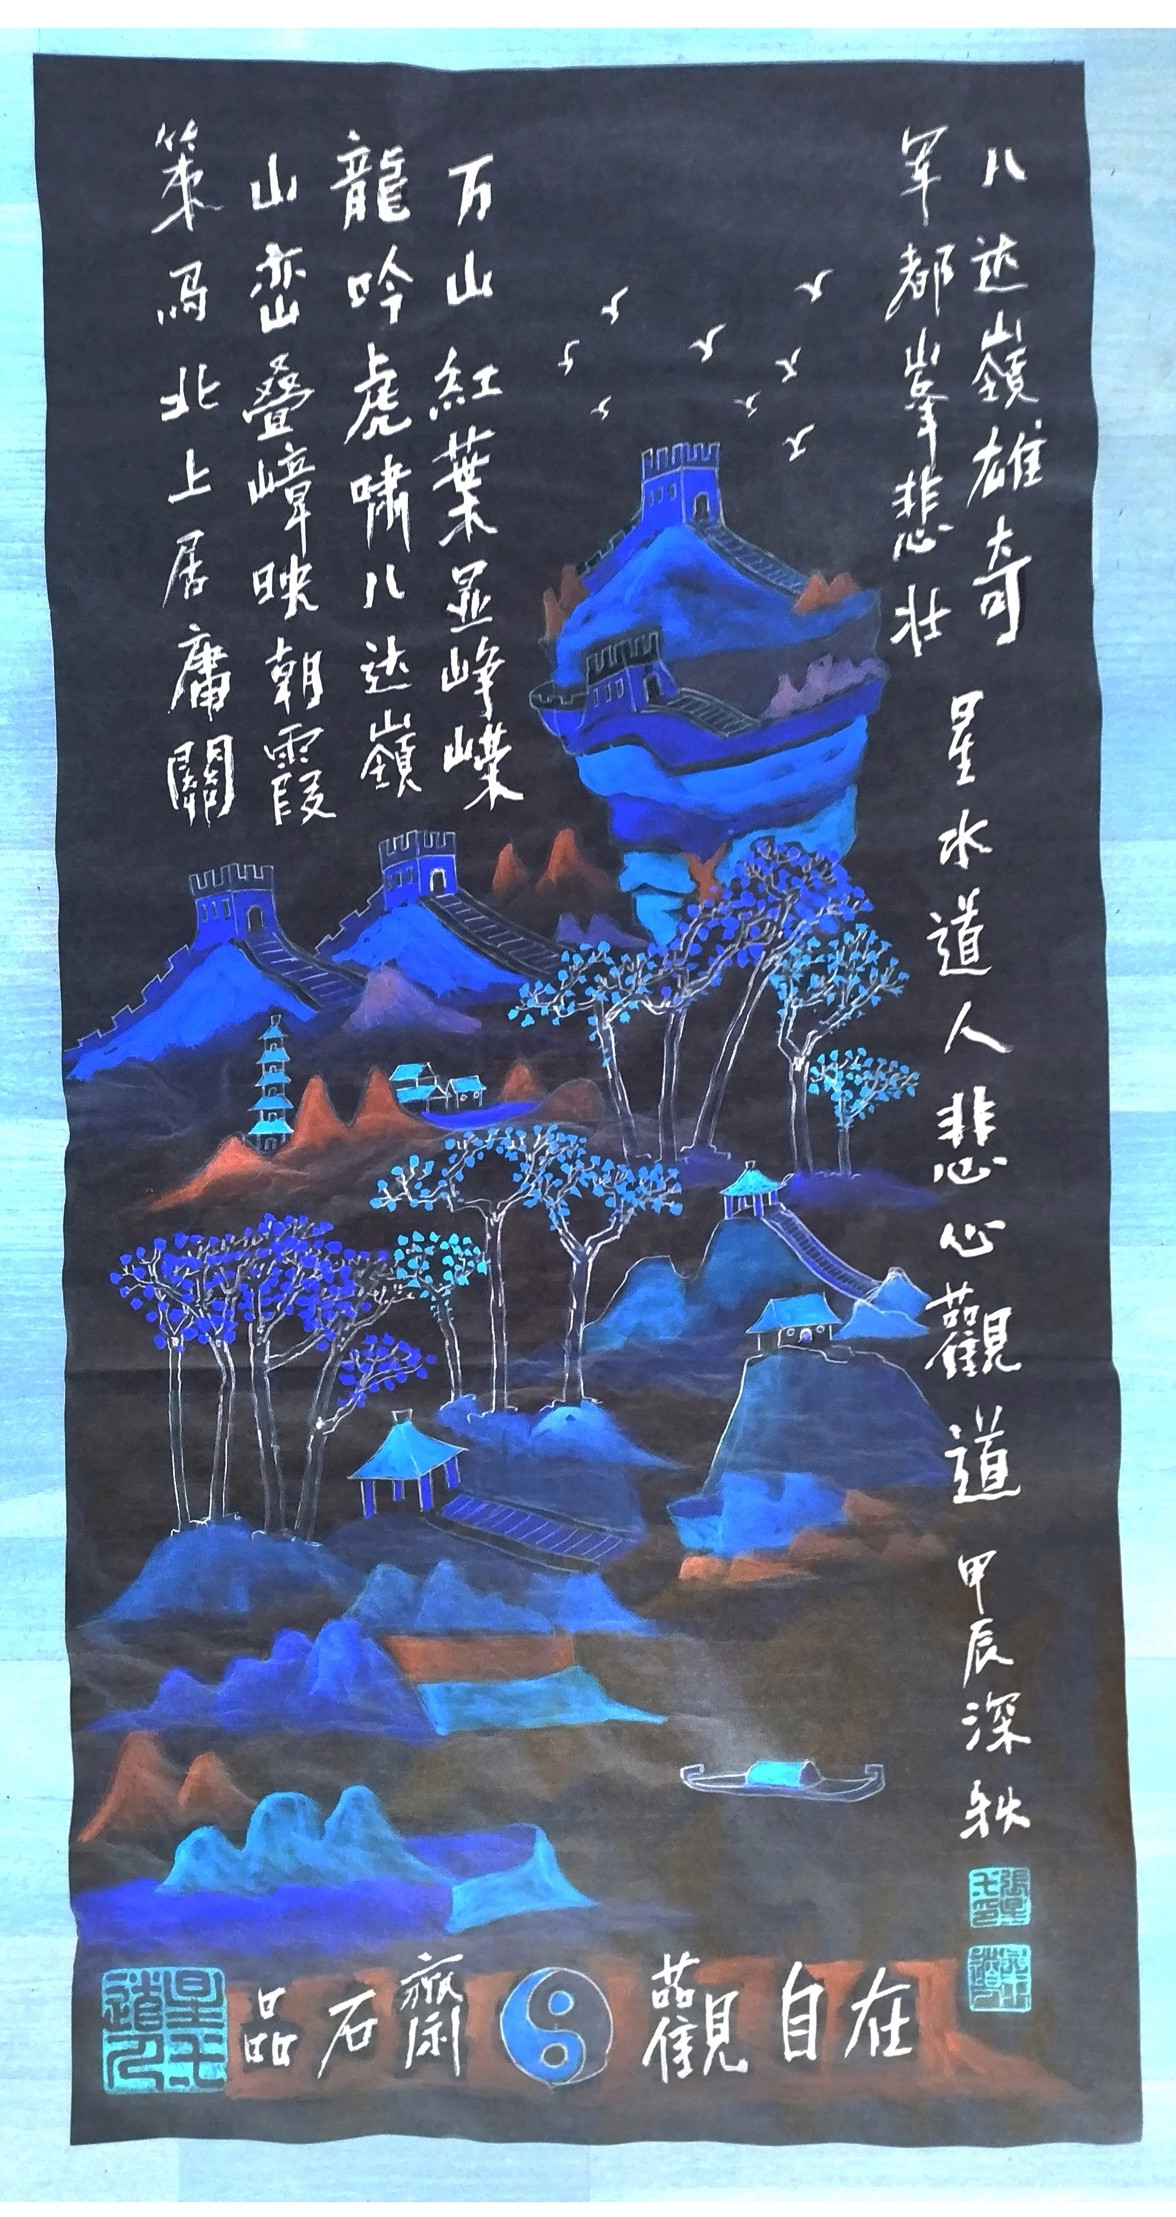 八达嶺雄奇
军都峯悲壮
星水道人悲心觀道
甲辰深秋
万山紅葉显峥嵘
龍吟虎啸八达嶺
山峦叠嶂映朝霞
策馬北上居庸關
在自觀
齋石品